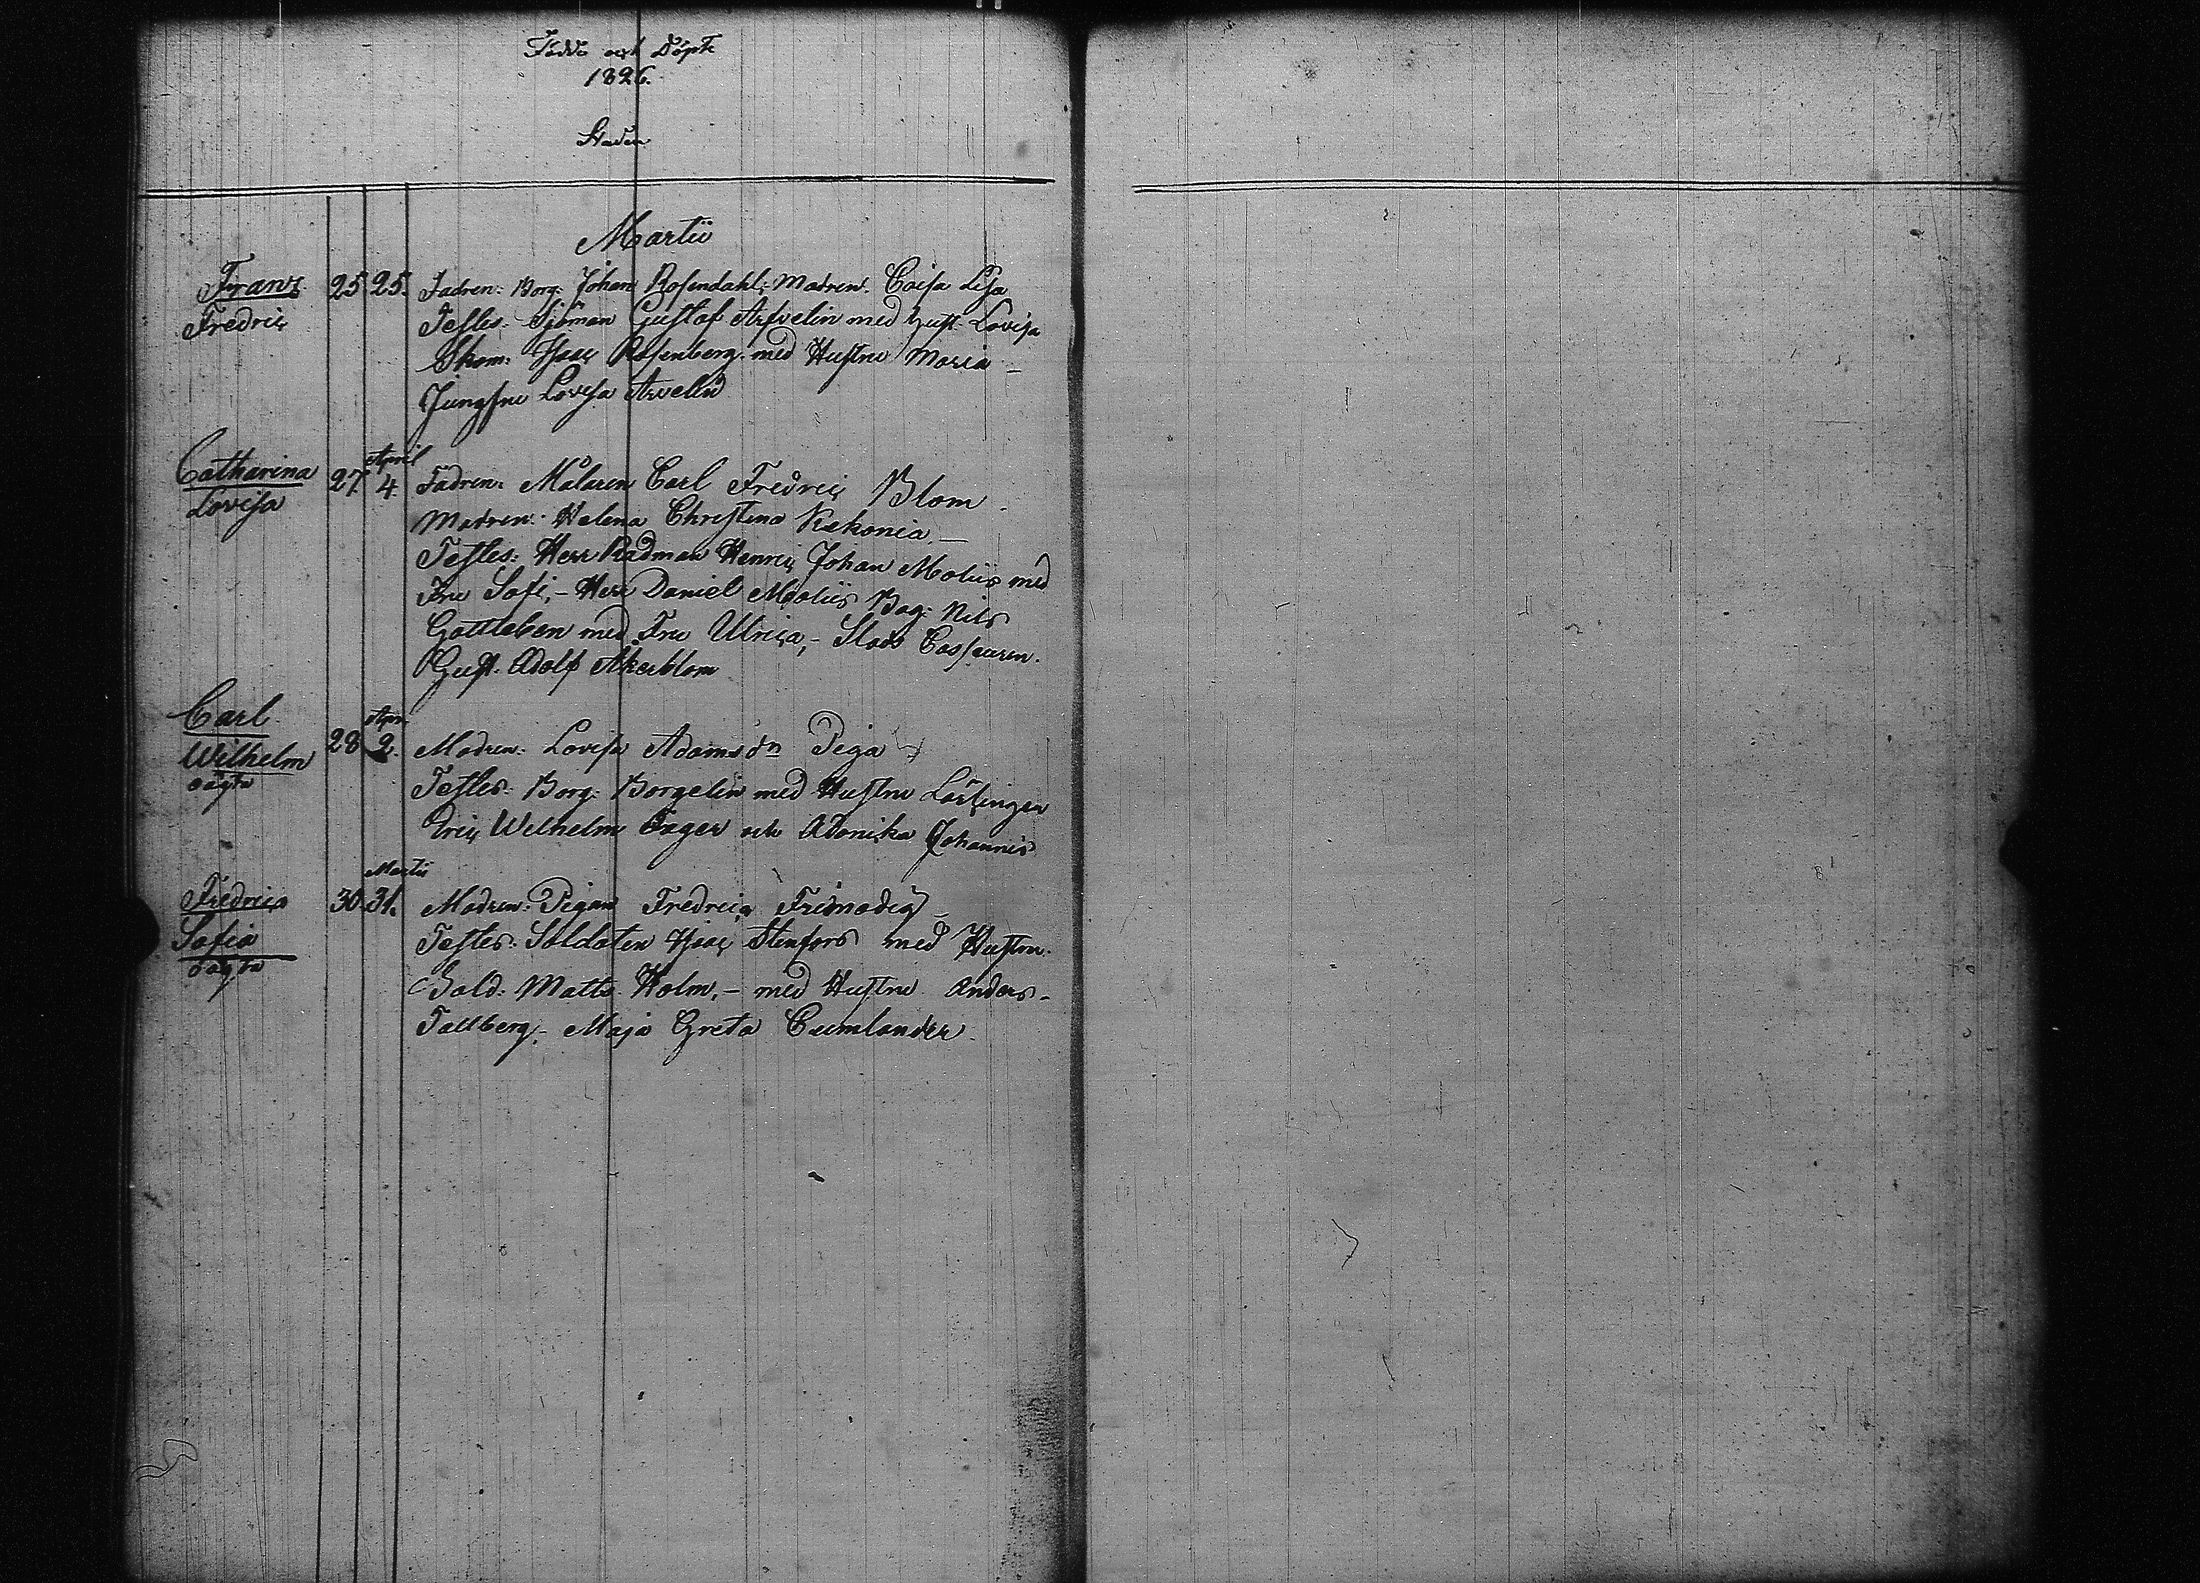 Födde och Döpte
1826.
Staden
Martii
Frans 25 25. Fadren: Borg: Johan Rosendahl; Modren. Caisa Lisa
Fredric Testes: Sjöman Gustaf Arfvelin med Hust: Lovisa
Skom: Isaac Rosenberg med Hustru Maria
Jungfru Lovisa Arvelin
April
Catharina 27. 4. Fadren: Målaren Carl Fredric Blom
Lovisa Modren: Helena Christina Kekonia.
Testes: Herr Rådman Henric Johan Moliis med
Fru Sofi, – Herr Daniel Moliis Bag: Nils
Gottleben med Fru Ulrica, – Stads Casseuren.
Gust. Adolf Åkerblom
Carl Apr.
Wilhelm 28 2. Modren: Lovisa Adamsdn Piga
oägta Testes: Borg: Borgelin med Hustru Lärlingen
Eric Wilhelm Fager och Adonika Johannis
Martii
Fredrica 30. 31. Modren: Pigan Fredrica
Sofia Testes: Soldaten Isaac Stenfors med Hustru.
oägta
Sold: Matts Holm, – med Hustru Anders
Tallberg, Maja Greta Cumlander.